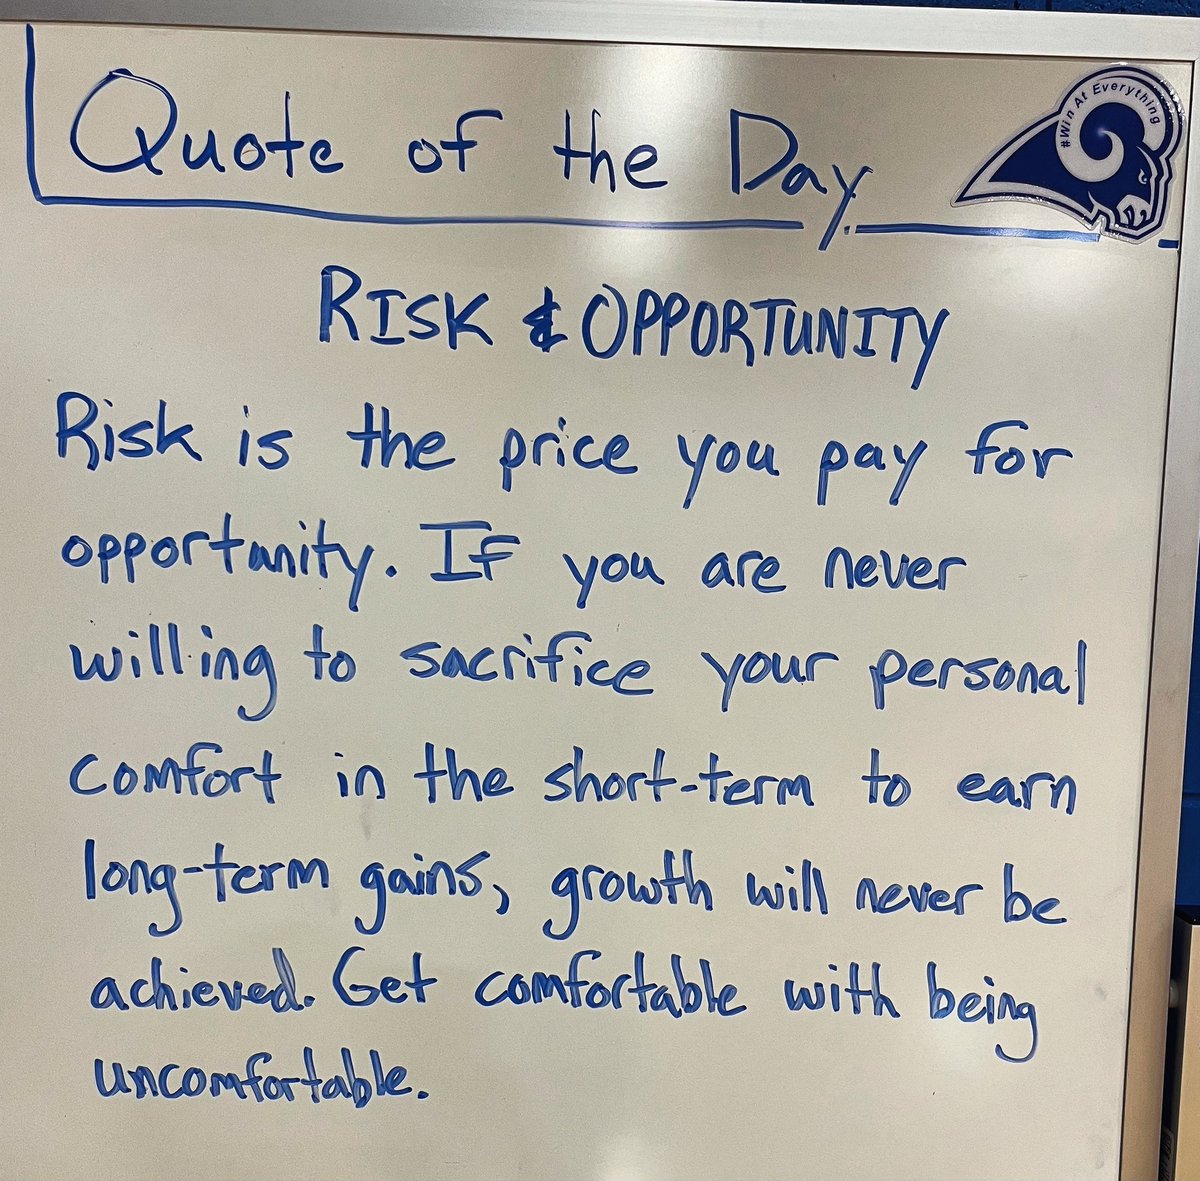 Quote of the Day
#Win At Everything
RISK & OPPORTUNITY
Risk is the price you pay for
opportunity. If you are never
willing to sacrifice your personal
comfort in the short-term to earn
long-term gains, growth will never be
achieved. Get comfortable with being
uncomfortable.